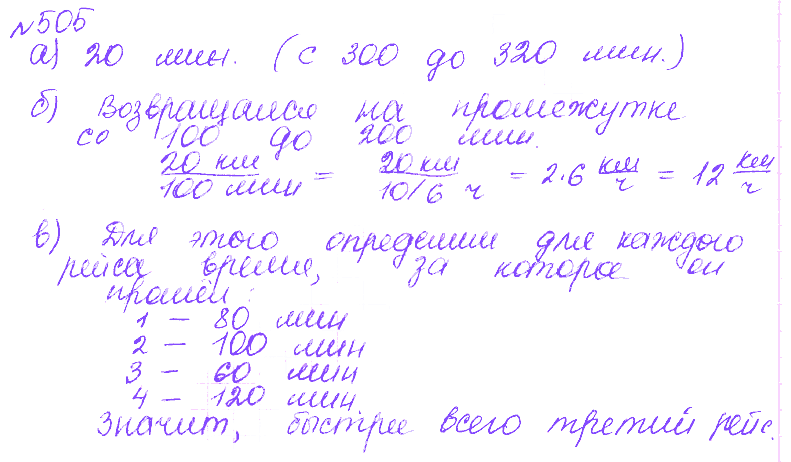 №505
а) 20 мин. (с 300 до 320 мин.)
б) Возвращался на промежутке
со 100 до 200 мин.
20 км / 100 мин = 20 км / 10/6 ч = 2·6 км/ч = 12 км/ч
в) Для этого определим для каждого
рейса время, за которое он
прошёл:
1 – 80 мин
2 – 100 мин
3 – 60 мин
4 – 120 мин
Значит, быстрее всего третий рейс.